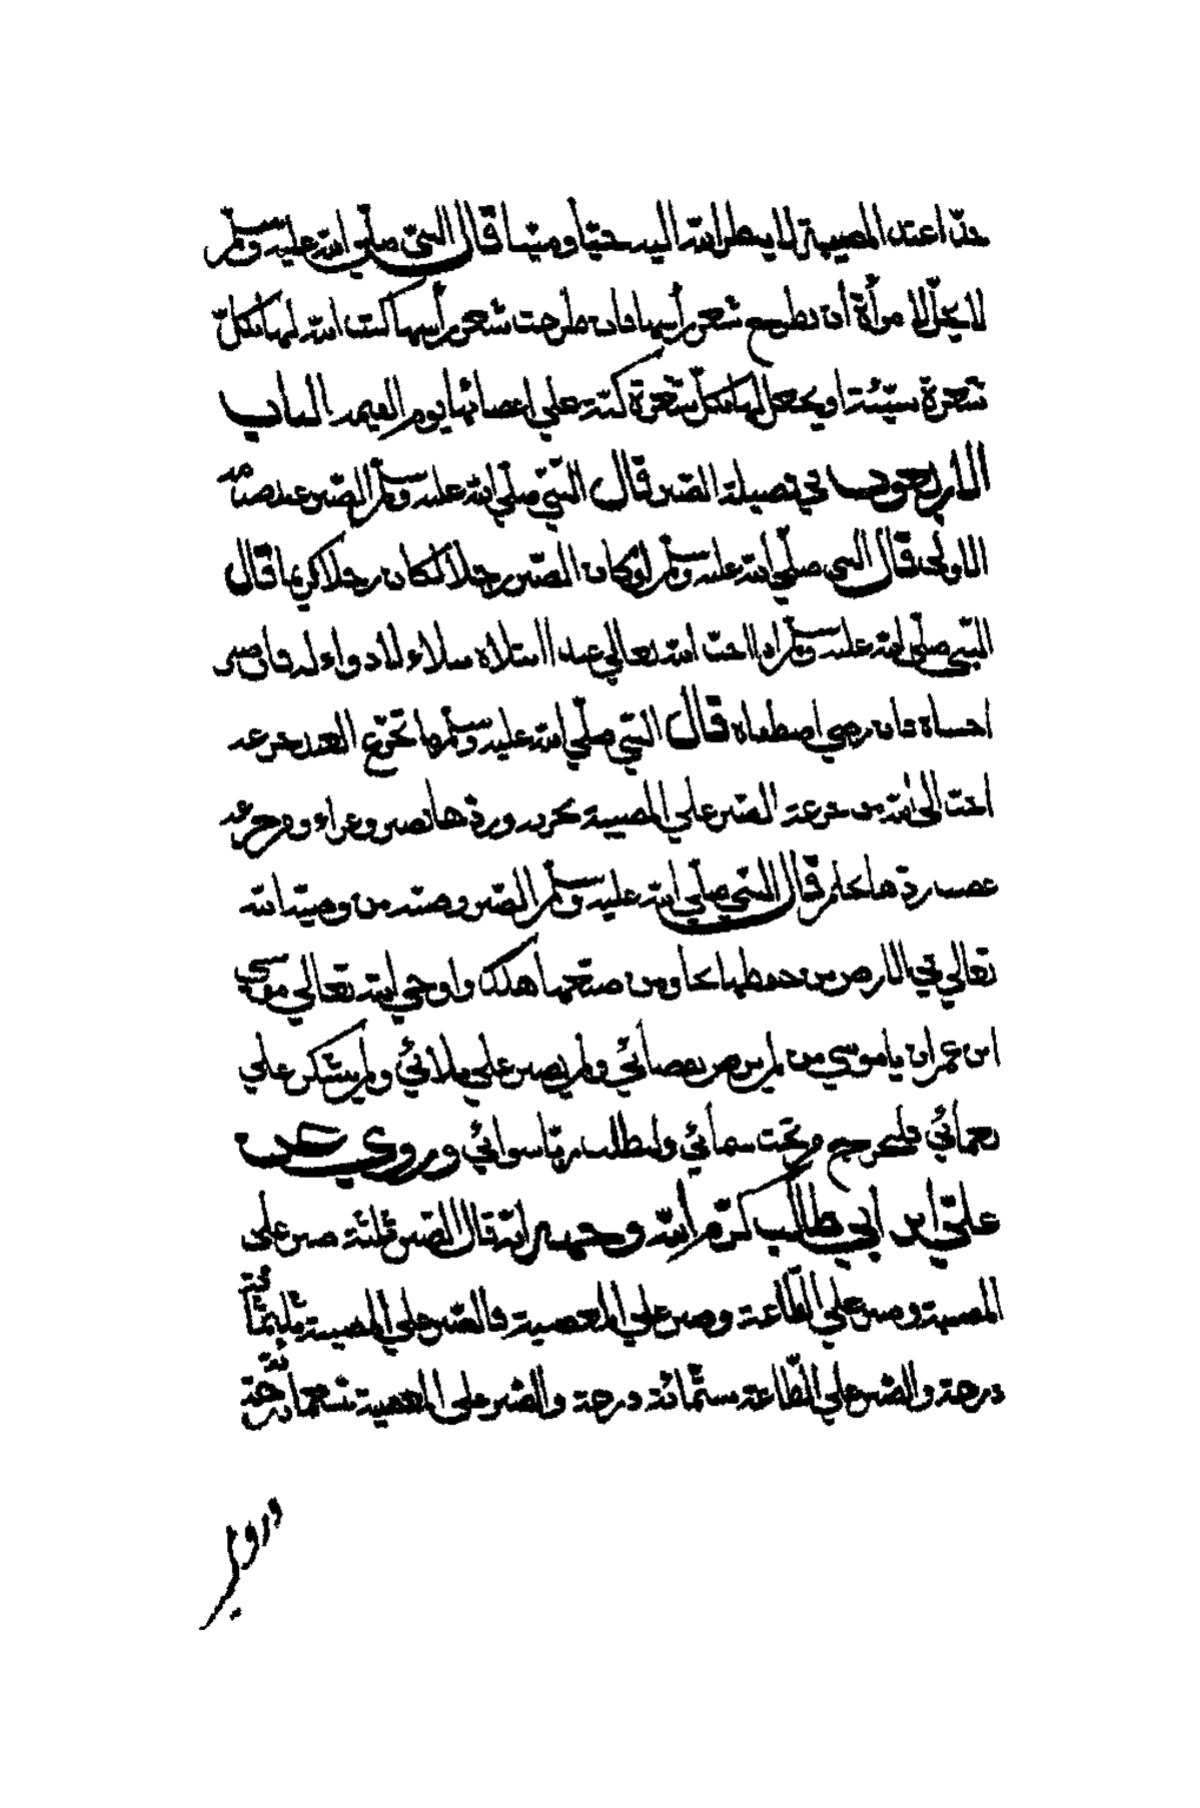 خدّا عند المصيبة لا ينظر الله اليه حيّا وميتا قال النبيّ صلّي الله عليه وسلّم
لا يحلّ لامرأة ان تطرح شعر رأسها فان طرحت شعر رأسها كتب الله لها بكلّ
شعرة سيّئة او يجعل لها بكلّ شعرة كية علي اعضائها يوم القيمة الباب
الاربعون في فضيلة الصّبر قال النبيّ صلّي الله عليه وسلّم الصّبر عند صدمة
الاولى قال النبي صلّي الله عليه وسلّم لو كان الصّبر رجلا لكان رجلا كريما قال
النبّي صلّى الله عليه وسلّم اذا احبّ الله تعالي عبدا ابتلاه ببلاء لا دواء له فان صبر
اجتباه فان رضي اصطفاه قال النبّي صلّي الله عليه وسلّم ما تجرّع العبد جرعة
احبّ الى الله من جرعة الصّبر علي المصيبة وردّها بصبر وعزاء وجرعة
غضب ردّها بحلم قال النبي صلّي الله عليه وسلّم الصّبر وصيّة من وصيّة الله
تعالي في الارض من حفظها نجا ومن ضيّعها هلك واوحي الله تعالي موسى
ابن عمران يا موسي من لم يرض بقضائي ولم يصبر علي بلائي ولم يشكر علي
نعمائي فليخرج من تحت سمائي وليطلب ربّا سوائي وروي عن
عليّ ابن ابي طالب كرّم الله وجهه انّه قال الصّبر ثلثة صبر على
المصيبة وصبر علي الطّاعة وصبر علي المعصية فالصّبر علي المصيبة ثلثمائة
درجة والصّبر علي الطّاعة ستّمائة درجة والصّبر على المعصية تسعمائة درجة